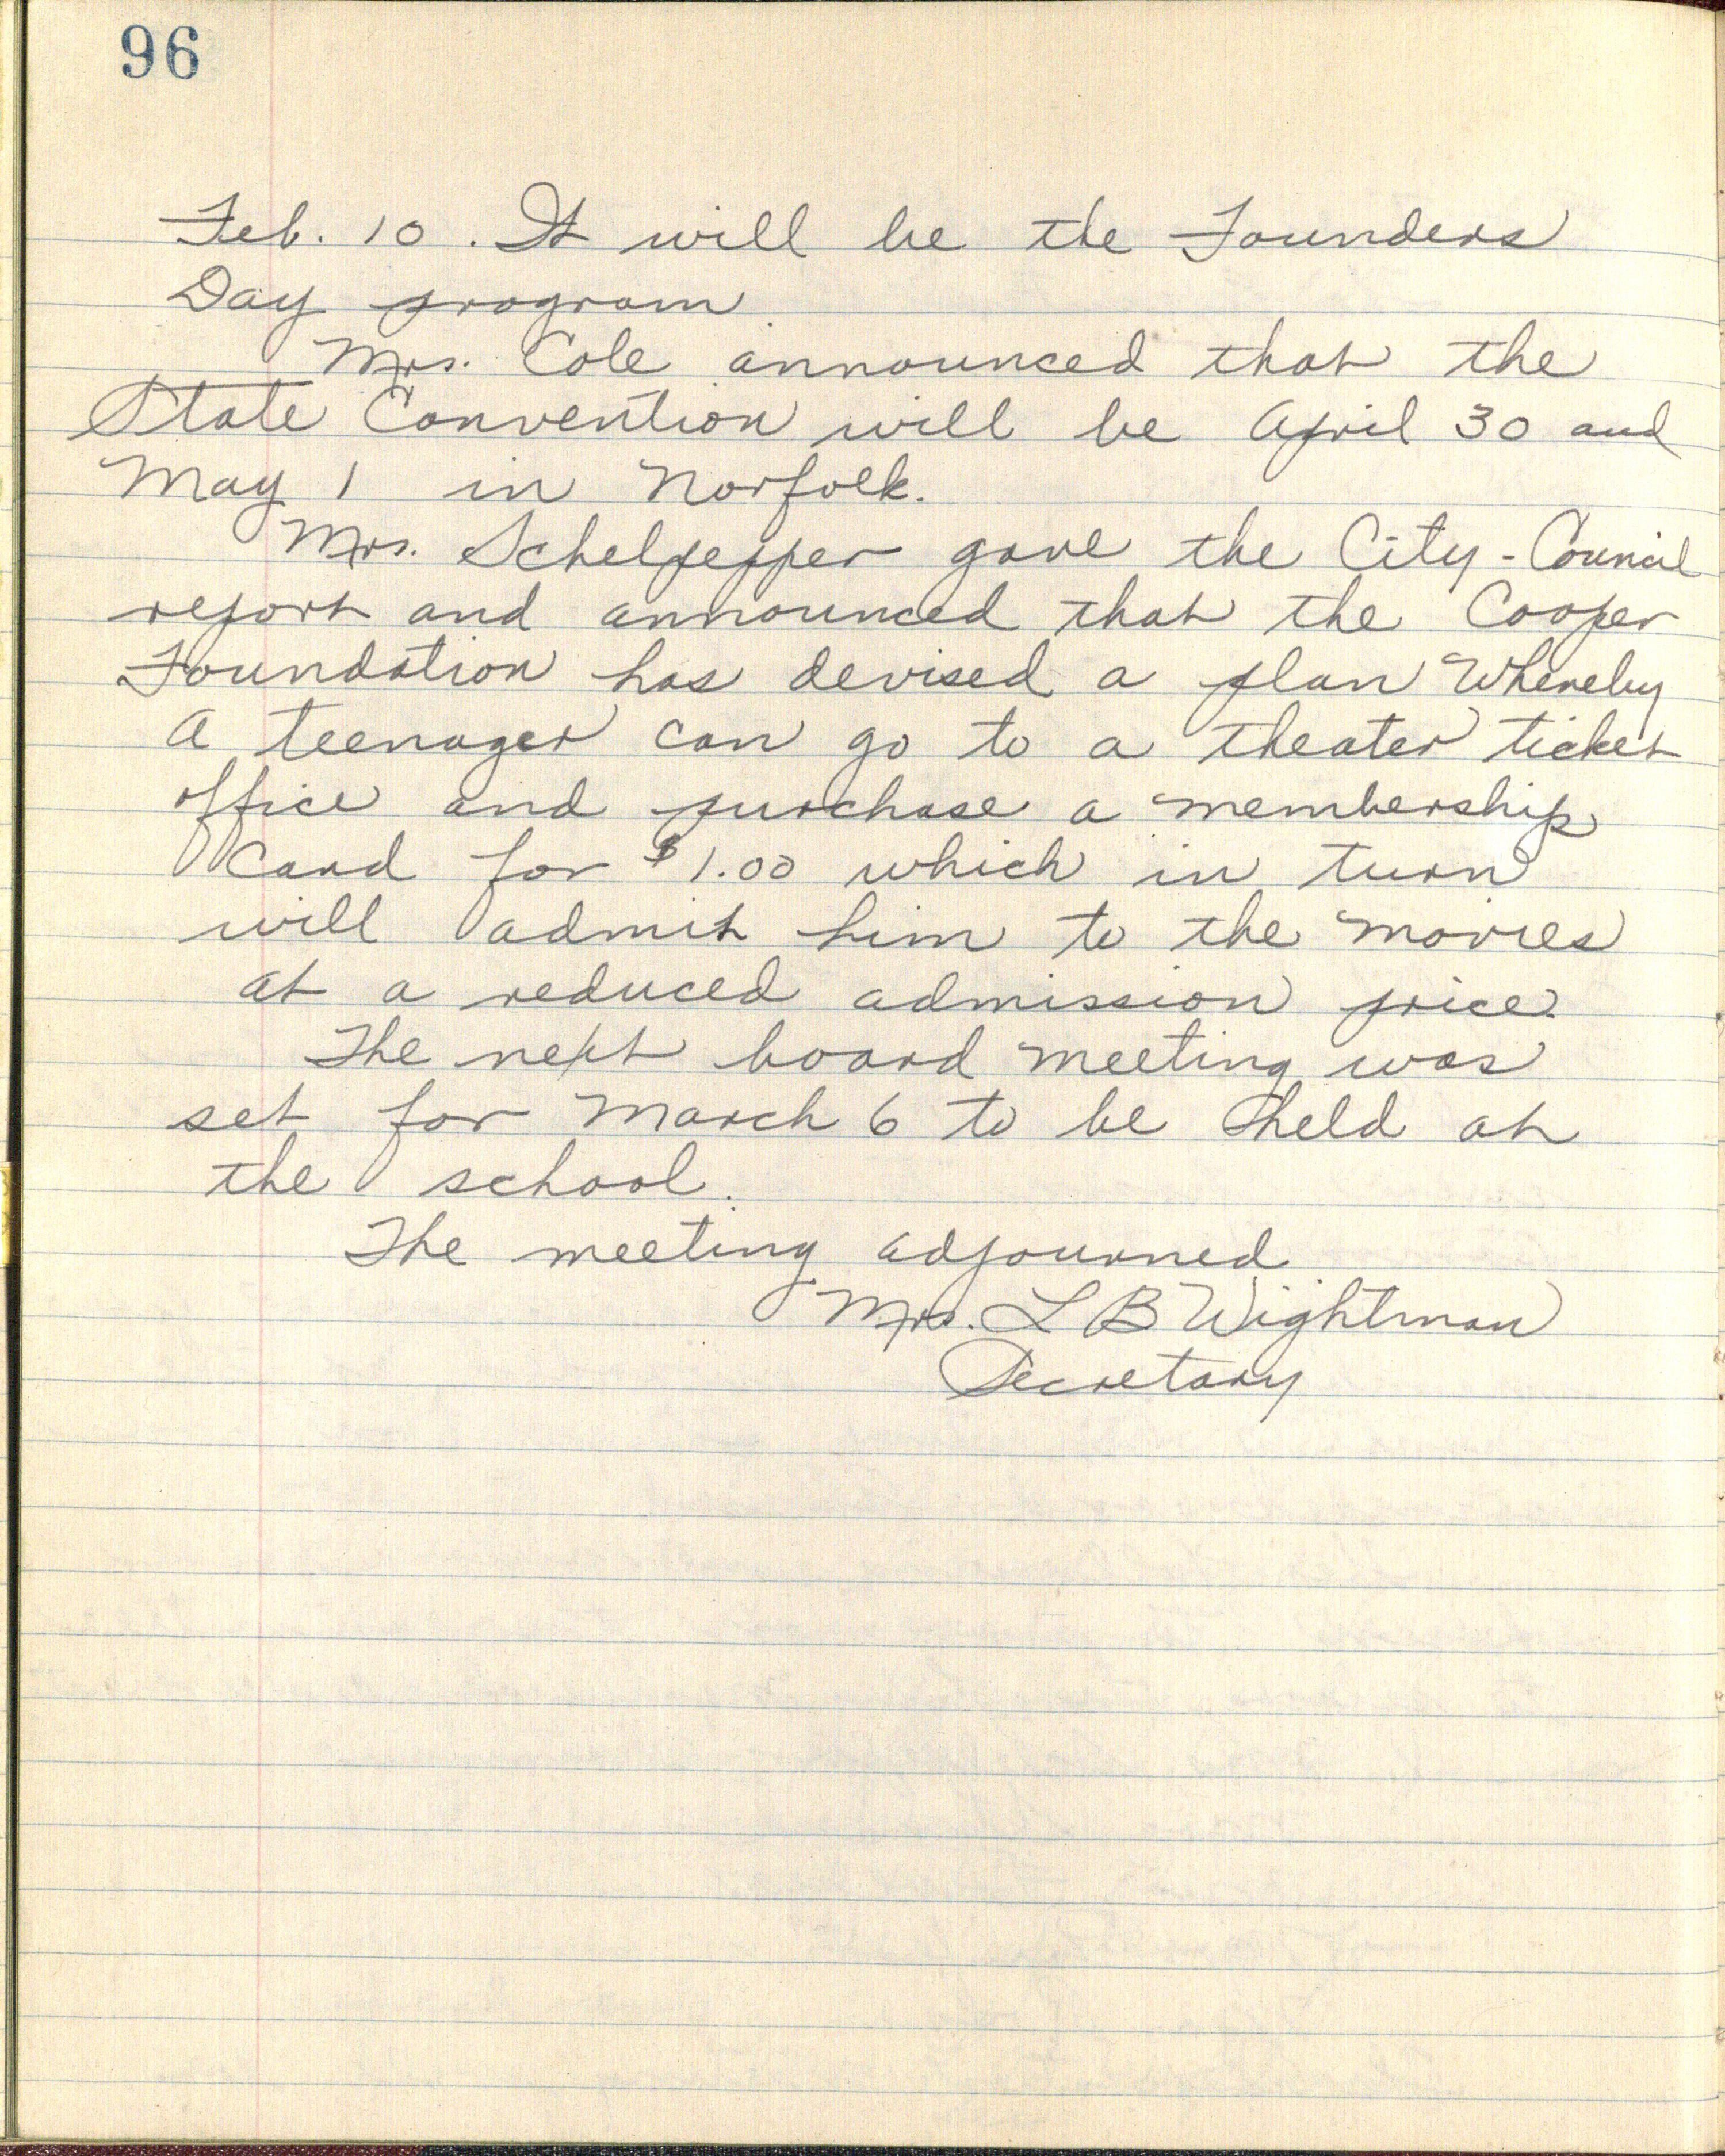 96
Feb. 10. It will be the Founders
Day program
Mrs. Cole announced that the
State Convention will be April 30 and
May 1 in Norfolk.
Mrs. Schelpepper gave the City-Council
report and announced that the Cooper
Foundation has devised a plan Whereby
a teenager can go to a theater ticket
office and purchase a membership
Card for $1.00 which in turn
will admit him to the movies
at a reduced admission price.
The next board meeting was
set for March 6 to be held at
the school.
The meeting adjourned
Mrs. L B Wightman
Secretary